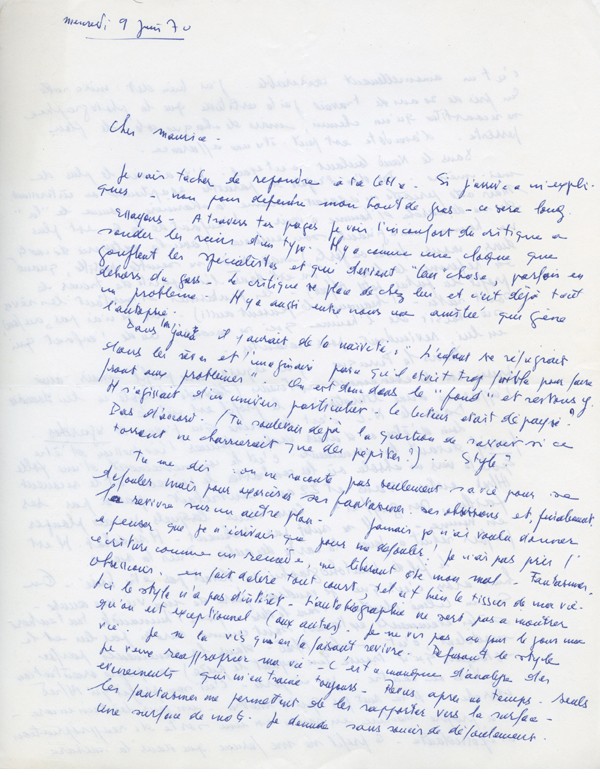 mercredi 9 Juin 70
Cher maurice -
Je vais tâcher de répondre à ta lettre. Si j'arrive à m'expli-
quer - non pour défendre mon bout de gras - ce sera long.
Essayons - A travers tes pages je vois l'inconfort du critique à
sonder les reins d'un type. Il y a comme une cloque que
gonflent les spécialistes et qui devient "leur" chose, parfois en
dehors du gars. Le critique se place de chez lui et c'est déjà tout
un problème. Il y a aussi entre nous une amitié qui gêne
l'entreprise.
Dans il y aurait de la naïveté! L'enfant se réfugiait
dans les rêves et l'imaginaire parce qu'il était trop faible pour faire
front aux problèmes". On est donc dans le "fond" et restons y.
Il s'agissait d'un univers particulier - le lecteur était dépaysé?
Pas d'accord. (Tu soulevais déjà la question de savoir si ce
torrent ne charrierait que des pépites!) Style?
Tu me dis: on ne raconte pas seulement sa vie pour se
défouler mais pour exorciser ses fantasmes, ses obsessions et, finalement,
la revivre sur un autre plan. Jamais je n'ai voulu donner
à penser que je n'écrivais que pour me défouler! Je n'ai pas pris l'
écriture comme un remède, me libérant de mon mal - Fantasmes,
obsessions, en fait délire tout court, tel est bien le tissu de ma vie -
Ici le style n'a pas d'intérêt - L'autobiographe ne vend pas à montrer
qu'on est exceptionnel (aux autres). Je ne vis pas au jour le jour ma
vie. Je ne la vis qu'en la faisant revivre. Refusant le style
je veux réapproprier ma vie - C'est un manque d'analyse des
événements qui m'entraîne toujours - Puis après un temps - seuls
les fantasmes me permettent de les rapporter vers la surface -
une surface de mots. Je donne sans souci de défoulement.